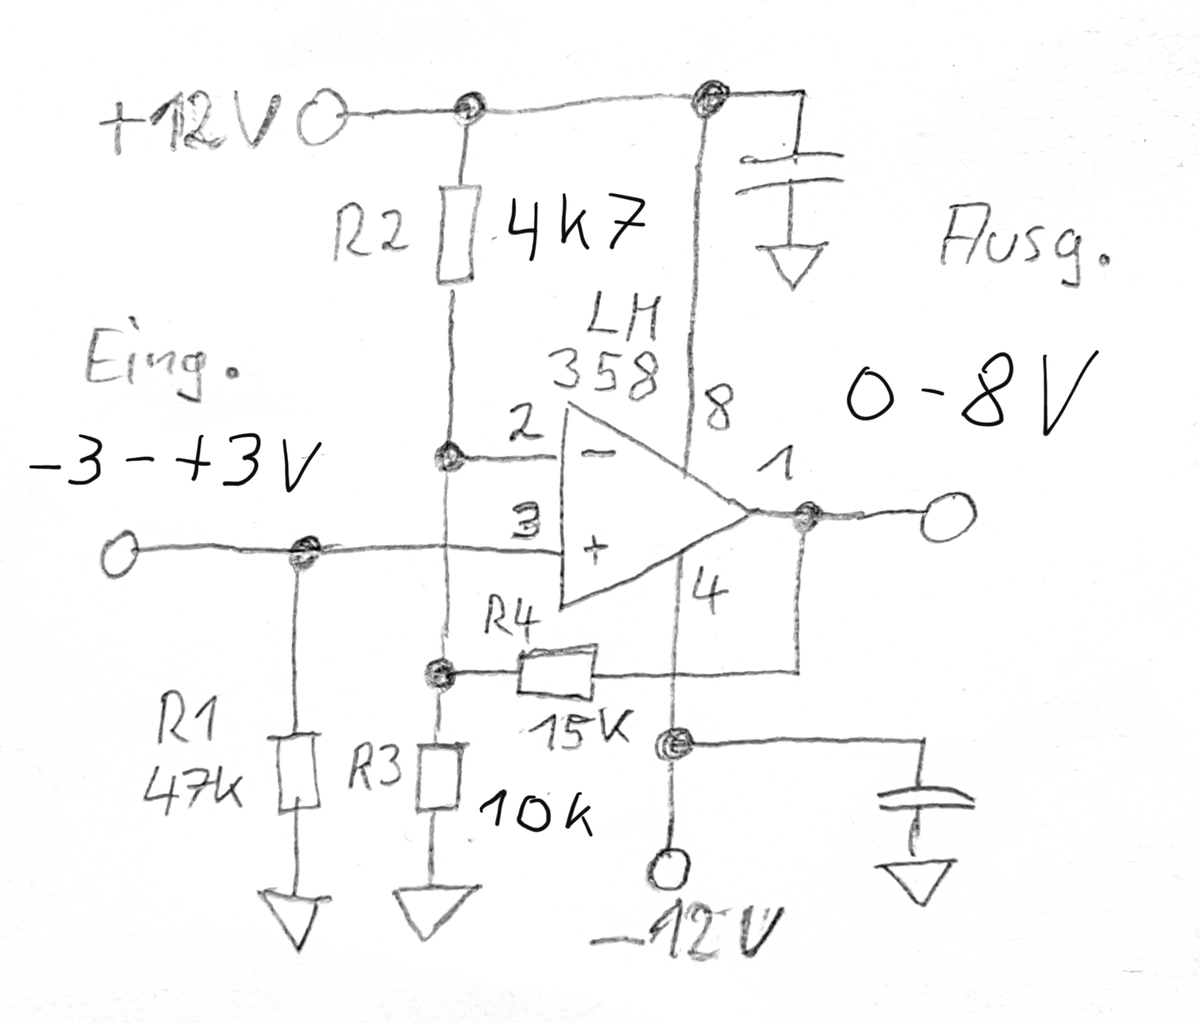 +12V
R2 4k7
Ausg.
LM
358
Eing.
8
0-8V
2
-
1
-3-+3V
3
+
4
R4
15K
R1
47k
R3
10k
-12V